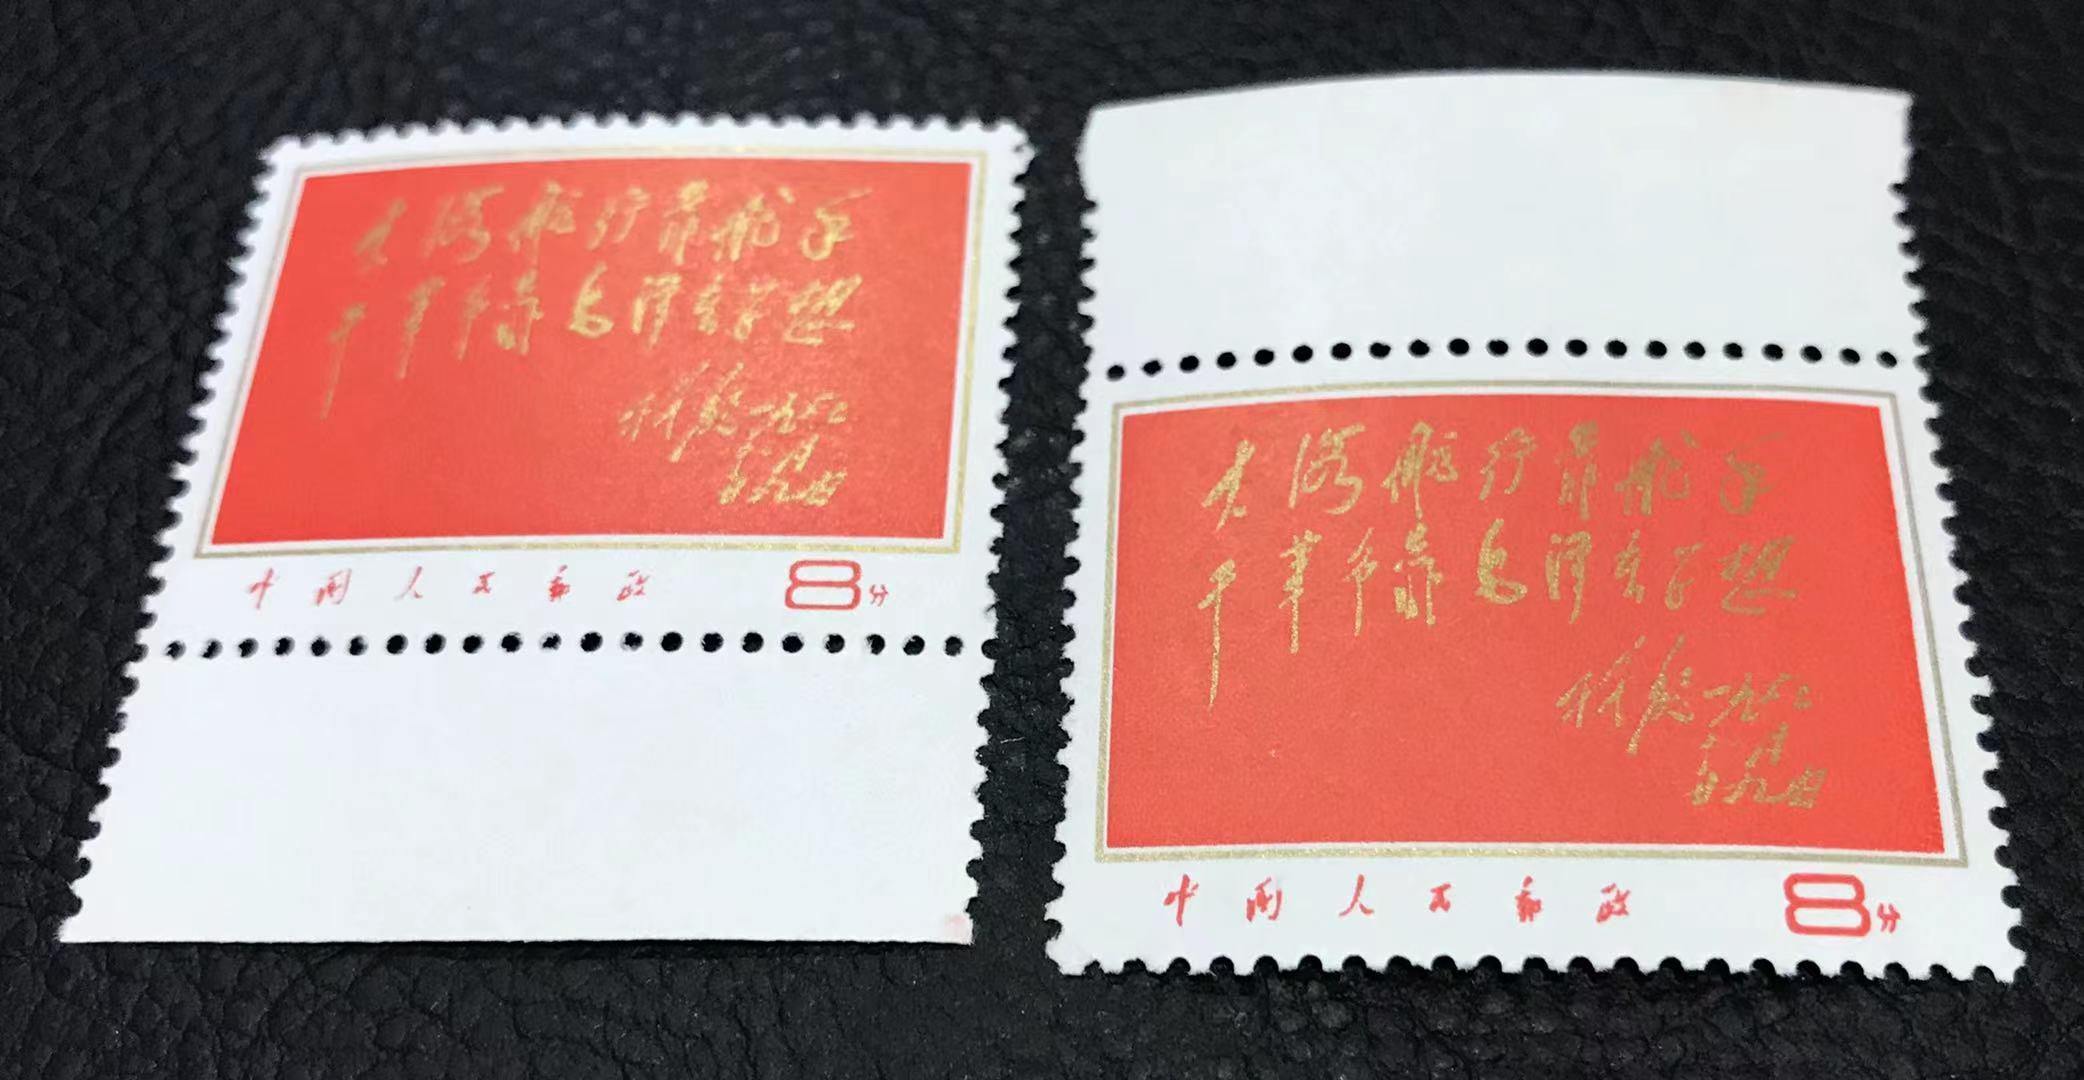 大海航行靠舵手
干革命靠毛泽东思想
林彪 一九六七
十一月
廿九日
中国人民邮政 8分
大海航行靠舵手
干革命靠毛泽东思想
林彪 一九六七
十一月
廿九日
中国人民邮政 8分